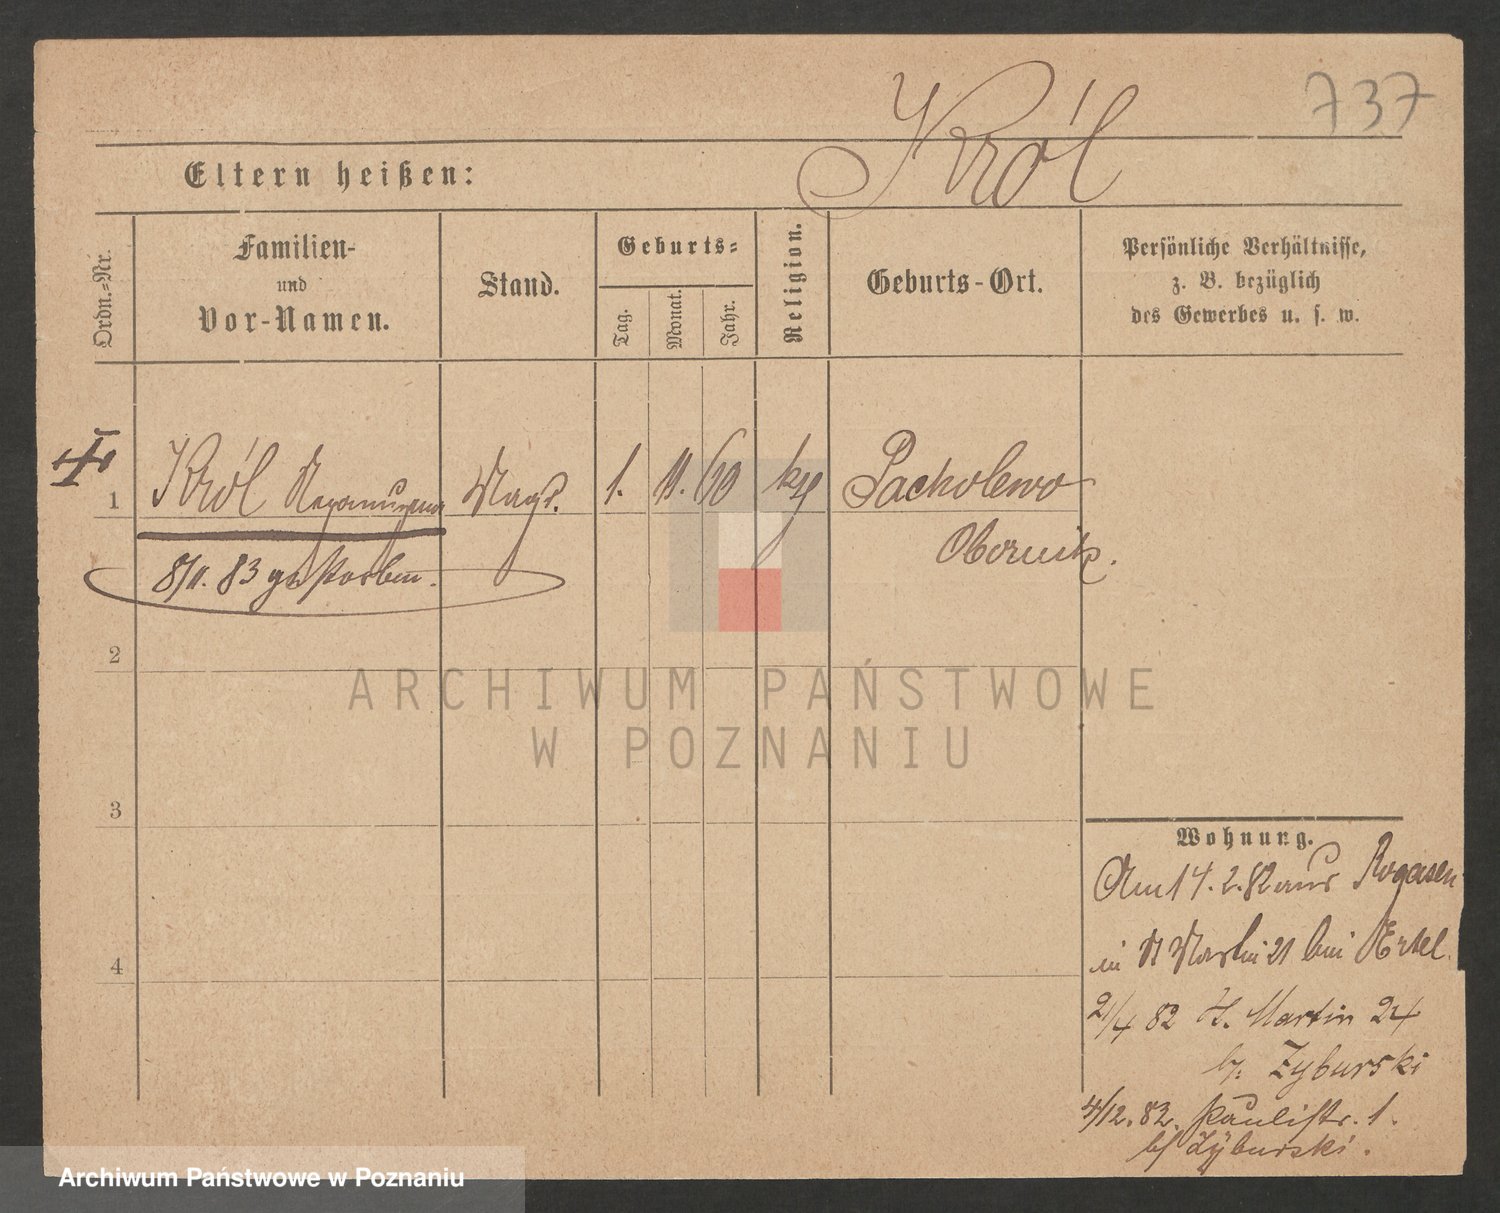 737
Król
Eltern heißen:
Ordn.-Nr.
Familien-
und
Vor-Namen.
Stand.
Geburts-
Tag.
Monat.
Jahr.
Religion.
Geburts-Ort.
Persönliche Verhältnisse,
z. B. bezüglich
des Gewerbes u. s. w.
1 Król Nepomuzena Magd. 1. 11. 60 kth Pacholewo
Obornik.
8/11. 83 gestorben.
2
3
4
Wohnung.
Am 14.2.82 aus Rogasen
in St Martin 21 bei Ertel.
21/4 82 St. Martin 24
b/. Zyburski
4/12.82. Paulistr. 1.
b/ Zyburski.
ARCHIWUM PAŃSTWOWE
W POZNANIU
Archiwum Państwowe w Poznaniu